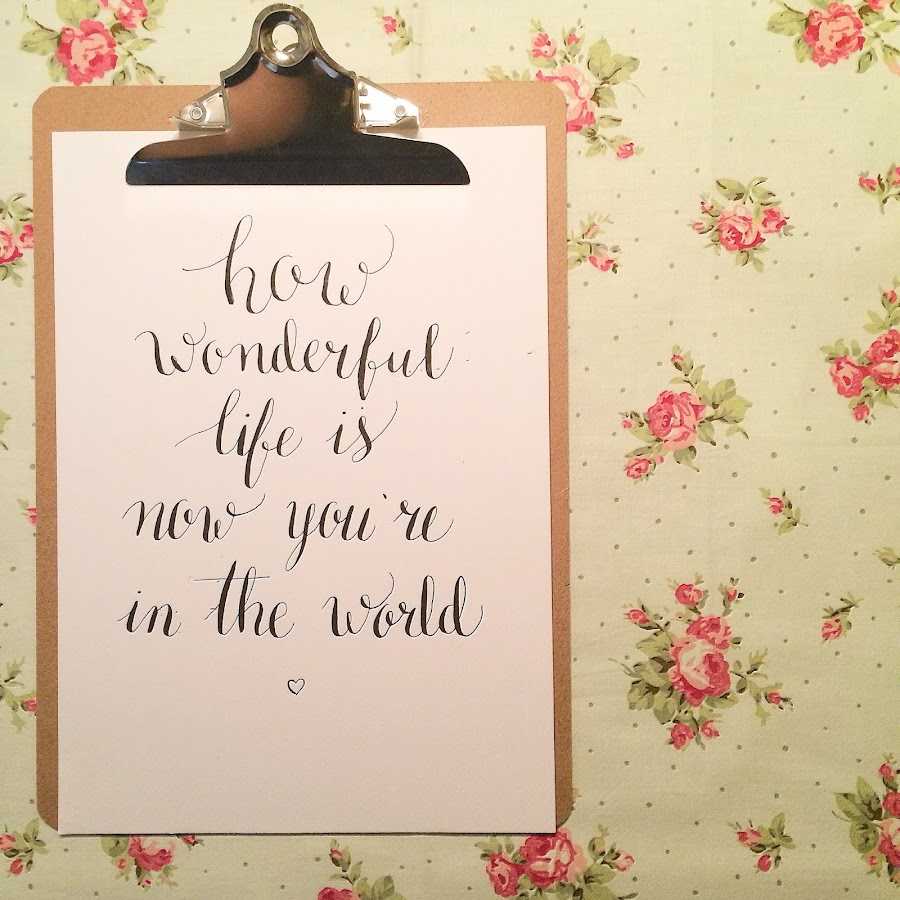 how
wonderful
life is
now you're
in the world
♡